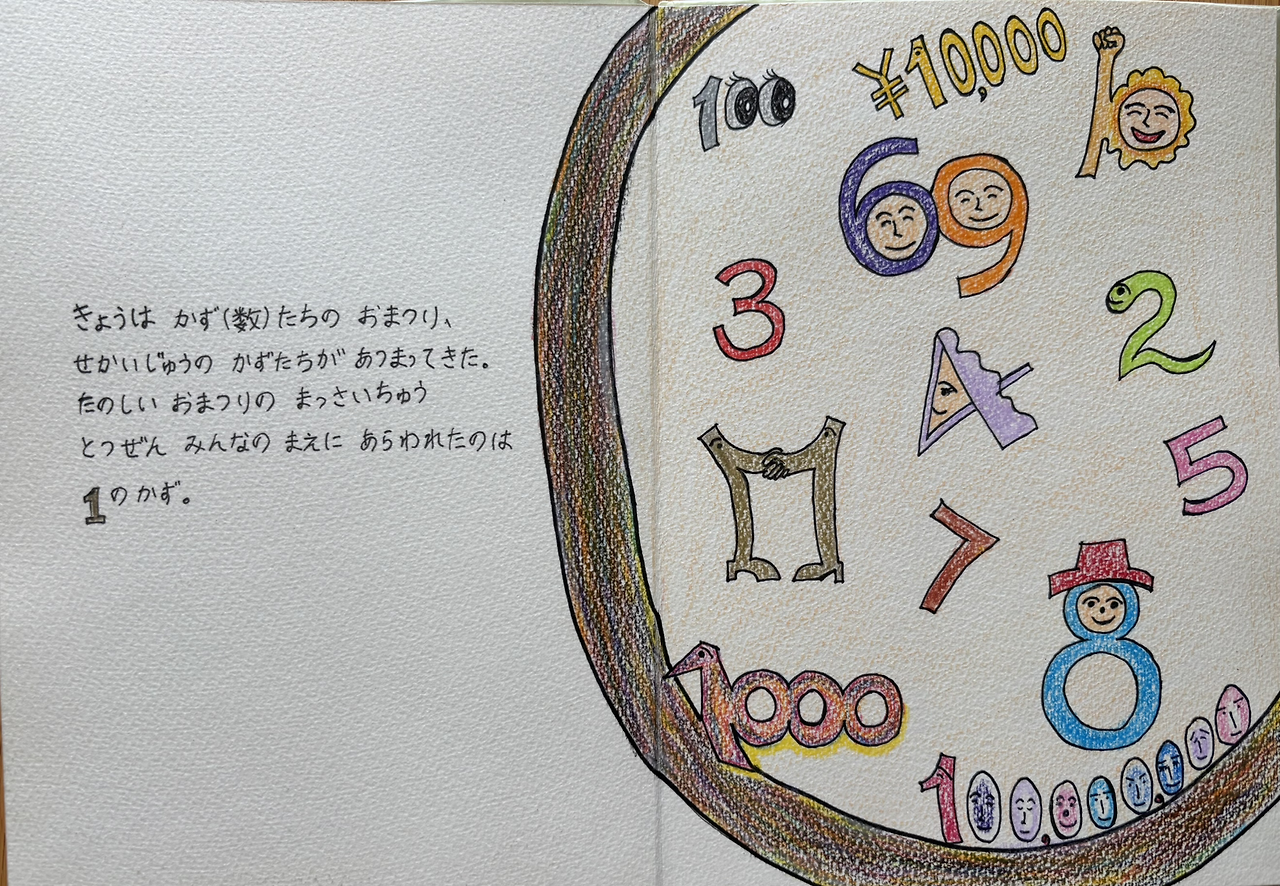 きょうは かず(数)たちの おまつり、
せかいじゅうの かずたちが あつまってきた。
たのしい おまつりの まっさいちゅう
とつぜん みんなの まえに あらわれたのは
1のかず。
100
¥10,000
10
69
3
2
4
11
5
7
8
1000
100,000,000